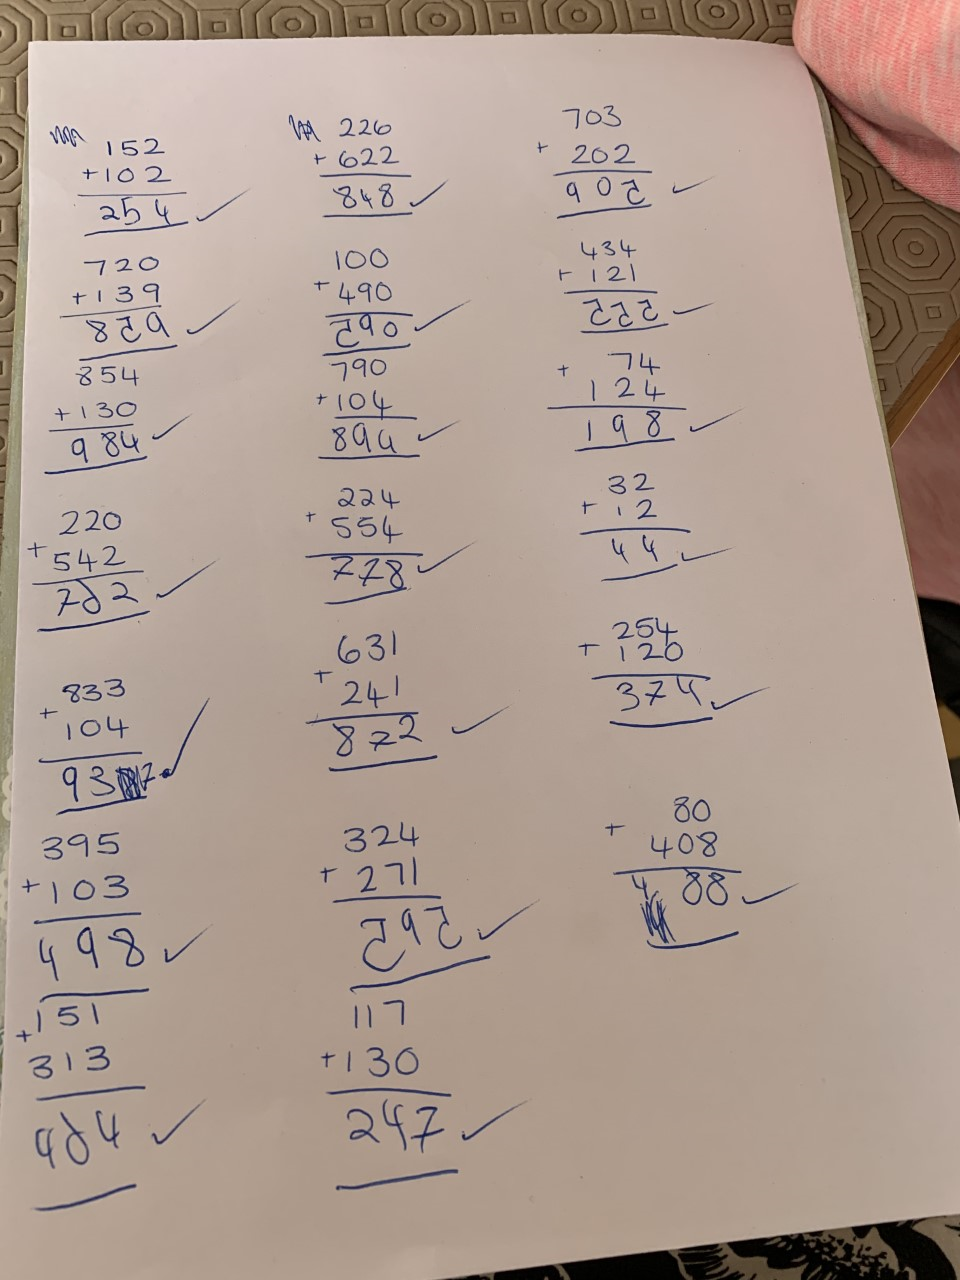 152
+102
254 ✓
720
+139
859 ✓
854
+130
984 ✓
220
+542
762 ✓
833
+104
937 ✓
395
+103
498 ✓
+151
313
464 ✓
226
+622
848 ✓
100
+490
590 ✓
790
+104
894 ✓
224
+554
778 ✓
631
+241
872 ✓
324
+271
595 ✓
117
+130
247 ✓
703
+202
905 ✓
434
+121
555 ✓
+74
124
198 ✓
32
+12
44 ✓
254
+120
374 ✓
80
+408
488 ✓